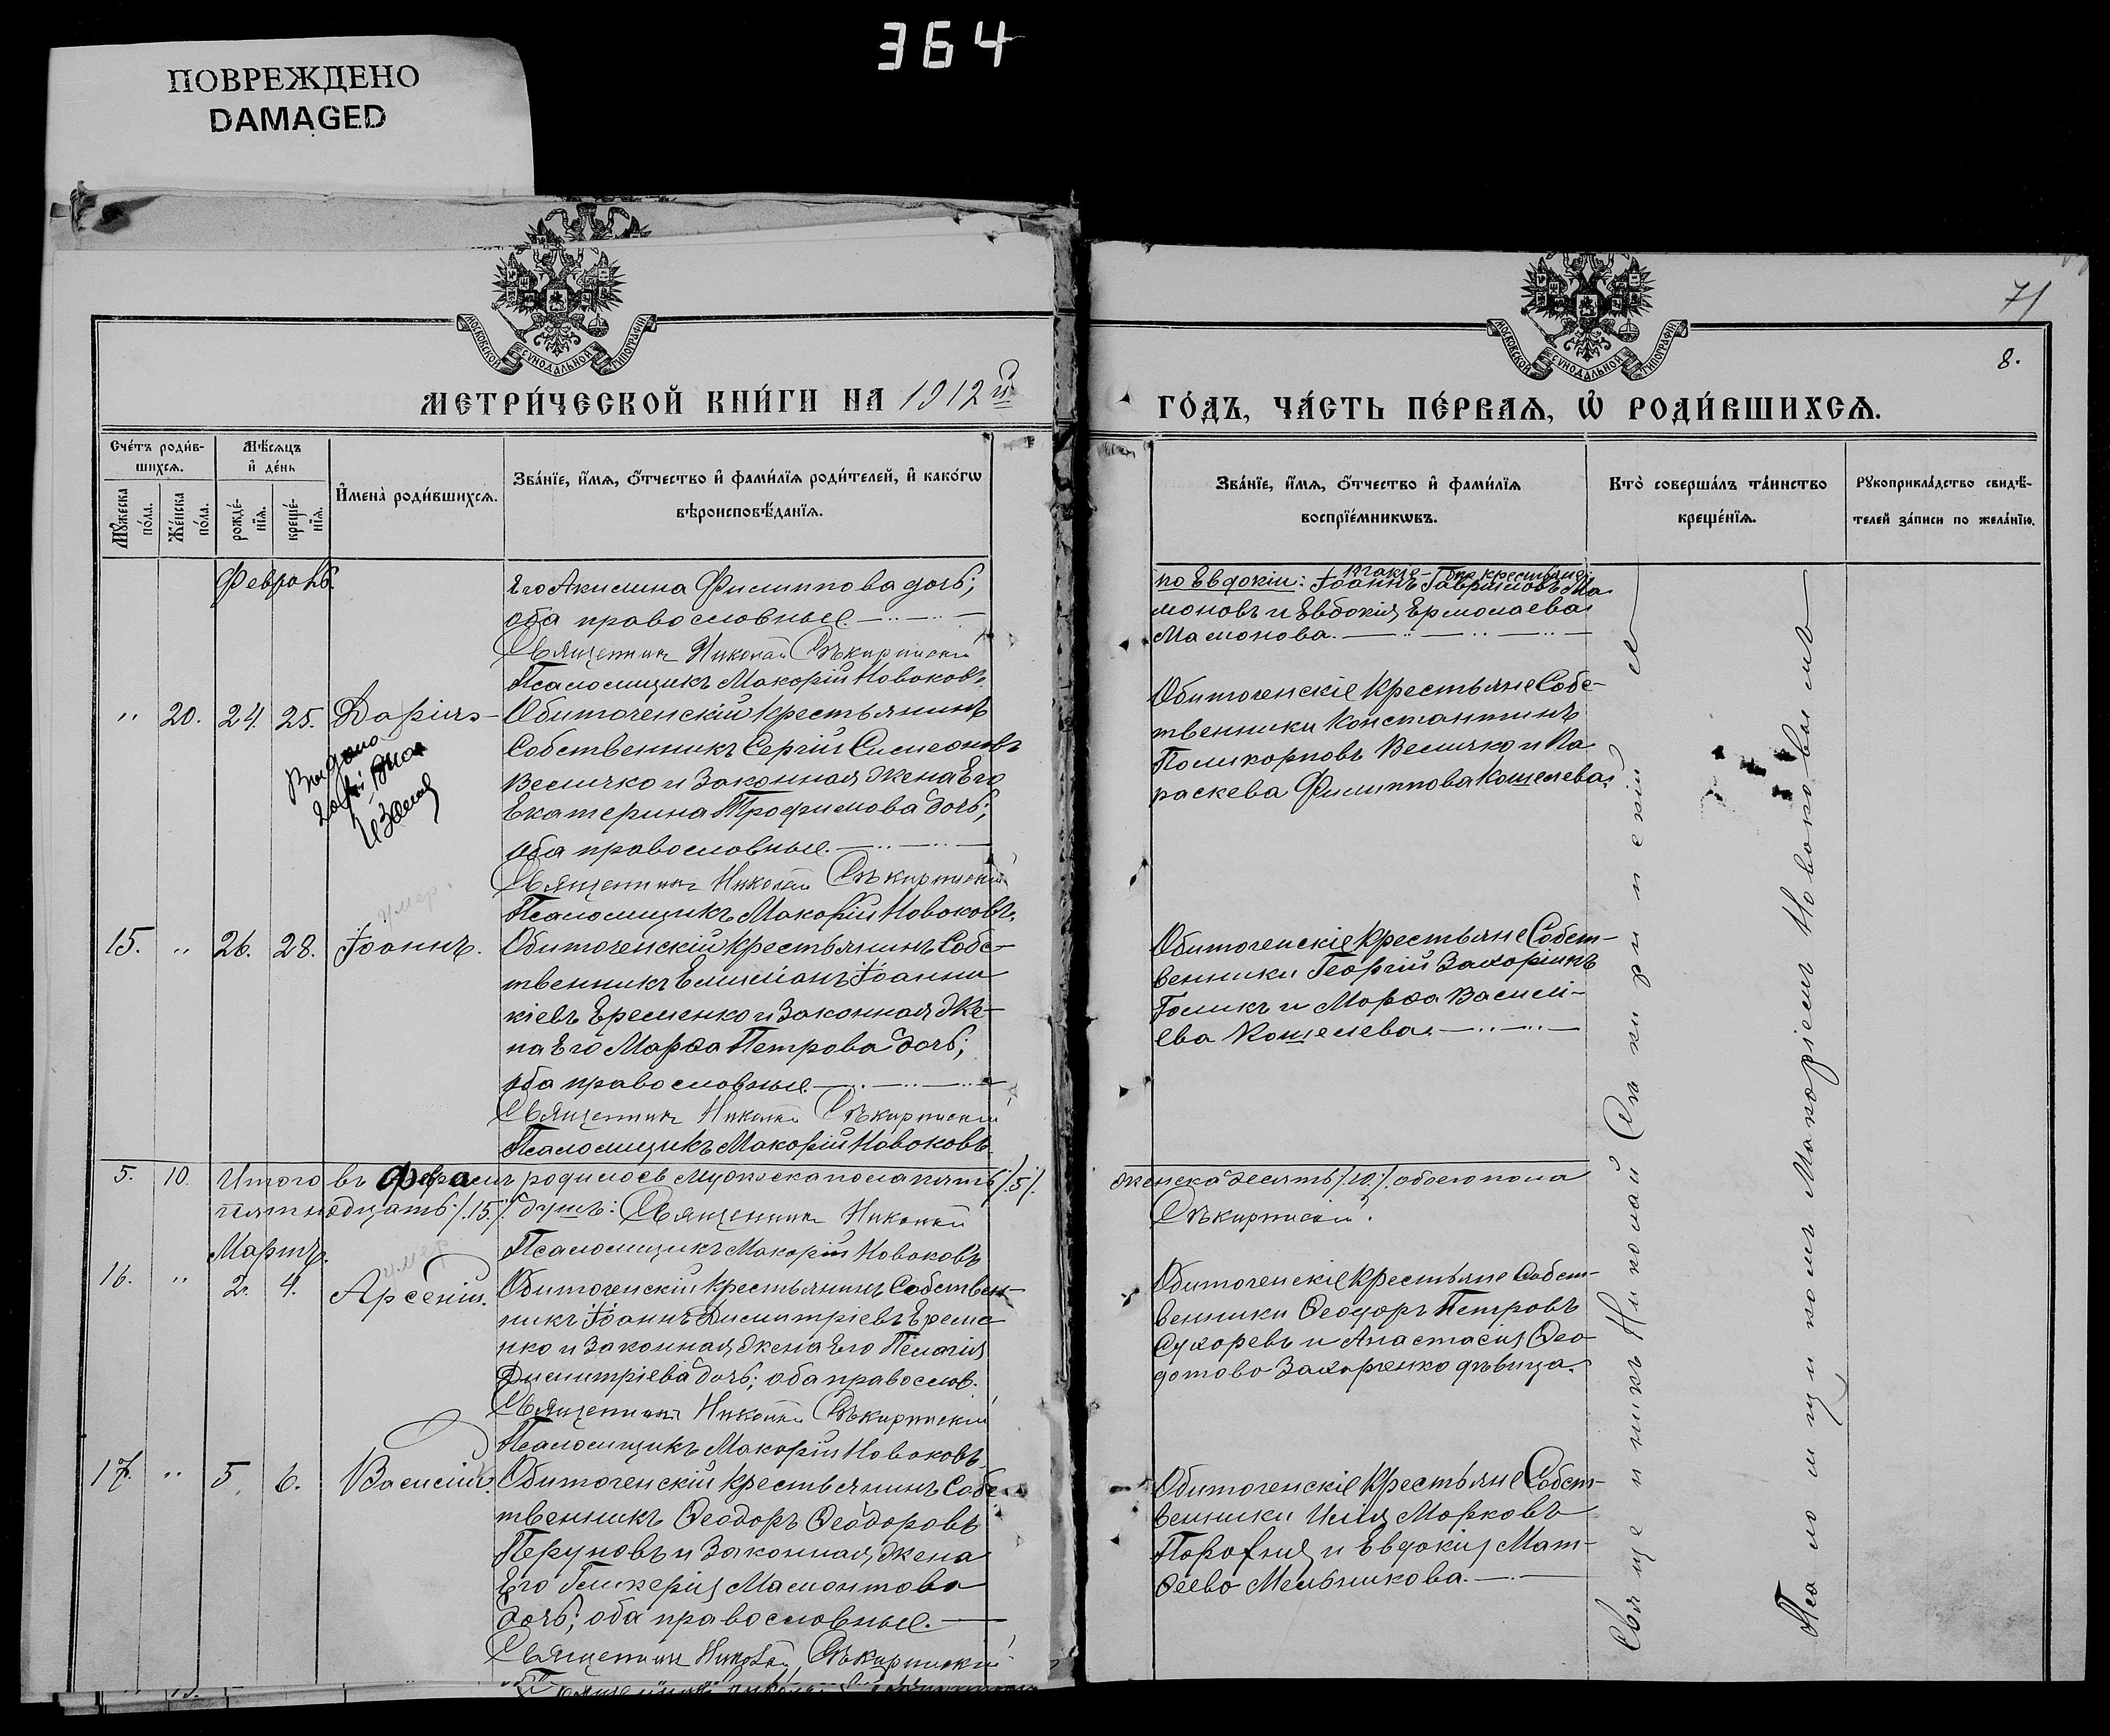 364
ПОВРЕЖДЕНО
DAMAGED
71
8.
МОСКОВСКОЙ СѴНОДАЛЬНОЙ ТИПОГРАФІИ
МОСКОВСКОЙ СѴНОДАЛЬНОЙ ТИПОГРАФІИ
МЕТРИ́ЧЕСКОЙ КНИ́ГИ НА 1912 й
ГО́ДЪ, ЧА́СТЬ ПЕ́РВАЯ, Ѽ РОДИ́ВШИХСЯ.
Сче́тъ роди́в-
шихся.
Мѣ́сяцъ
и҆ де́нь
Мꙋ́жеска
по́ла.
Же́нска
по́ла.
рожде́-
нїя.
креще́-
нїя.
И҆мена̀ роди́вшихся.
Зва́нїе, и҆́мя, ѻ҆́тчество и҆ фами́лїя роди́телей, и҆ како́гѡ
вѣроисповѣ́данїя.
Зва́нїе, и҆́мя, ѻ҆́тчество и҆ фами́лїя
воспрїе́мникѡвъ.
Кто̀ соверша́лъ та́инство
креще́нїя.
Рꙋкоприкла́дство свидѣ́-
телей за́писи по жела́нїю.
Февраль.
Его Акилина Филиппова дочь;
оба православные.
Священникъ Николай Сѣкиринскій
Псаломщикъ Макарій Новаковъ.
по Евдокіи: Іоаннъ Гавриловъ Ма
моновъ и Евдокія Ермолаева
Мамонова.
" 20. 24. 25. Дарія
Обиточенскій крестьянинъ
Собственникъ Сергій Симеоновъ
Величко и Законная жена Его
Екатерина Трофимова дочь;
оба православные.
Священникъ Николай Сѣкиринскій
Псаломщикъ Макарій Новаковъ.
Выдана
Обиточенскіе крестьяне Собс-
твенники Константинъ
Поликарповъ Величко и Па
раскева Филиппова Кошелева.
умер.
15. " 26. 28. Іоаннъ.
Обиточенскій крестьянинъ Собс-
твенникъ Емиліанъ Іоанни
кіевъ Еременко и Законная Же-
на Его Марѳа Петрова дочь;
оба православные.
Священникъ Николай Сѣкиринскій
Псаломщикъ Макарій Новаковъ.
Обиточенскіе крестьяне Собст-
венники Георгій Захаріинъ
Голикъ и Марѳа Василі-
ева Кошелева.
5. 10. Итого въ Февралѣ родилось Мужска пола пять /.5/.
женска десять /.10./. обоего пола
пятнадцать /.15/. душъ: Священникъ Николай
Сѣкиринскій.
Псаломщикъ Макарій Новаковъ
Мартъ.
умер
16. " 2. 4. Арсеній.
Обиточенскій крестьянинъ Собствен-
никъ Іоаннъ Димитріевъ Ереме
нко и Законная жена Его Пелагія
Димитріева дочь; оба правослов.
Священникъ Николай Сѣкиринскій
Псаломщикъ Макарій Новаковъ.
Обиточенскіе крестьяне Собст-
венники Ѳеодоръ Петровъ
Сухоревъ и Анастасія Ѳео
дотова Захарченко дѣвица.
17. " 5. 6. Василій.
Обиточенскій крестьянинъ Собс-
твенникъ Ѳеодоръ Ѳеодоровъ
Перуновъ и Законная жена
Его Гликерія Мамонтова
дочь; оба православные.
Священникъ Николай Сѣкиринскій
Обиточенскіе крестьяне Собст-
венники Илія Марковъ
и Евдокія Мат-
ѳеева Мельникова.
Священникъ Николай Сѣкиринскій
Псаломщикомъ Макаріемъ Новаковымъ